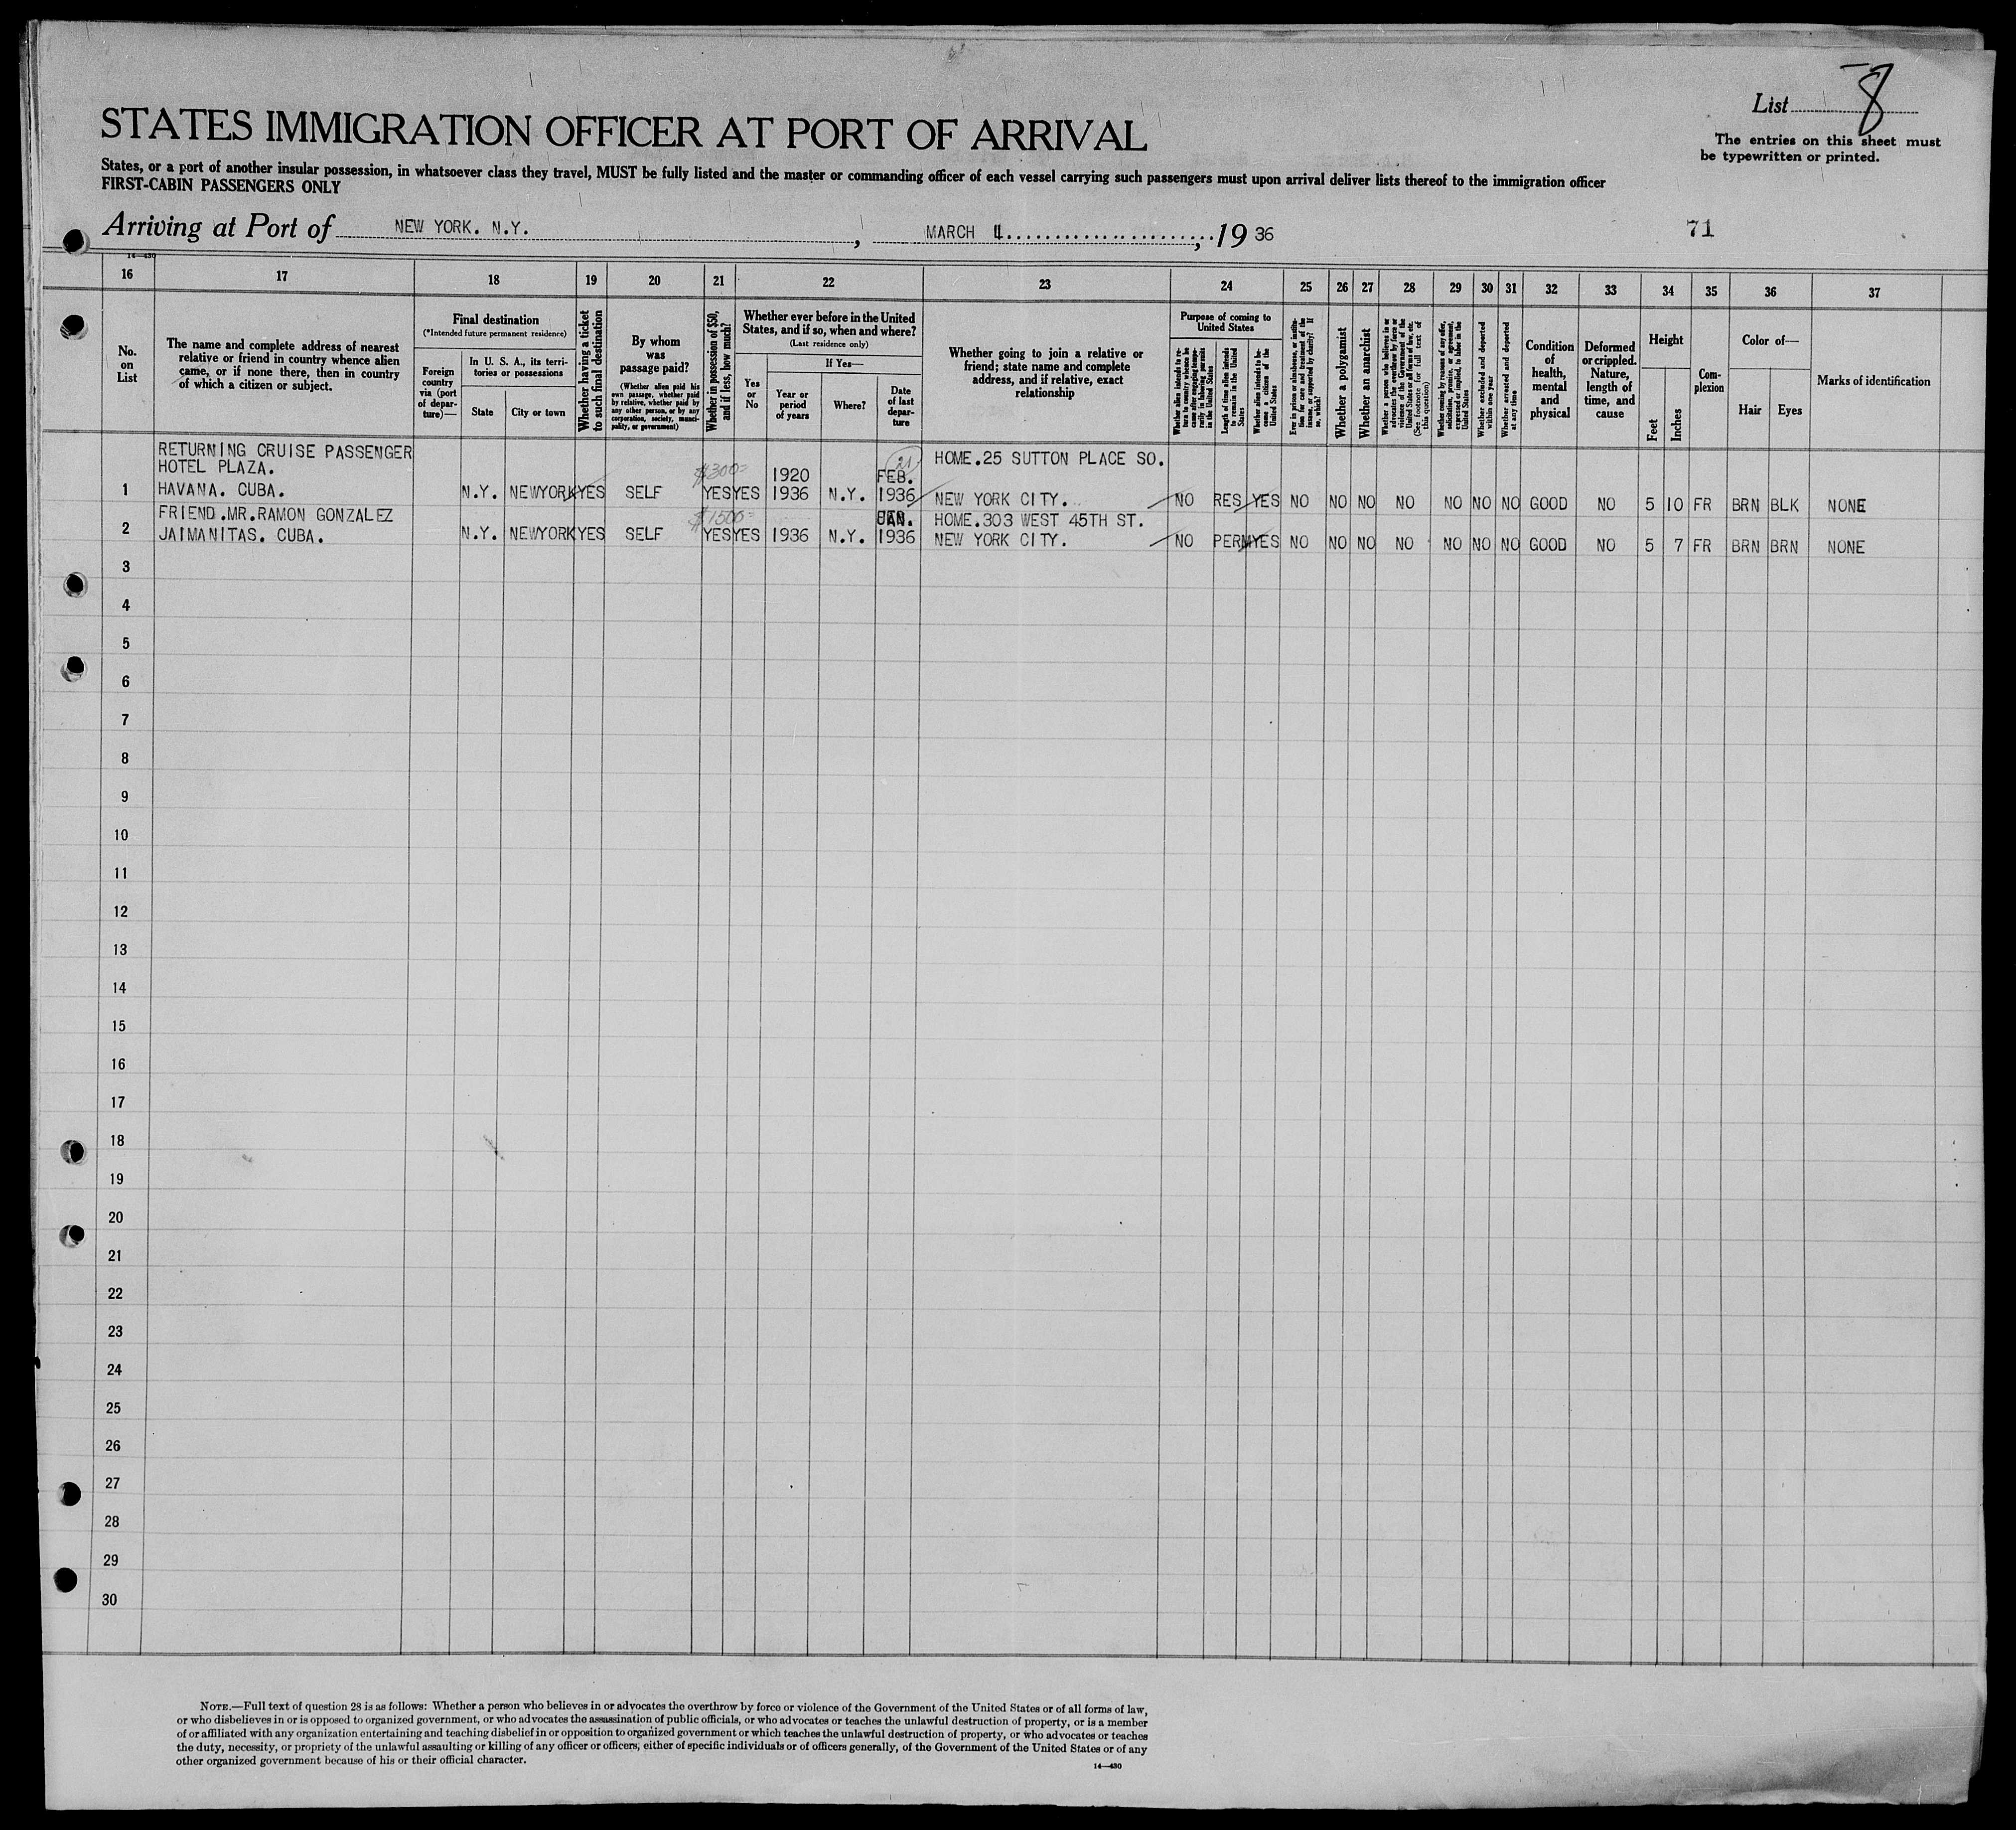 List 8
STATES IMMIGRATION OFFICER AT PORT OF ARRIVAL
The entries on this sheet must
be typewritten or printed.
States, or a port of another insular possession, in whatsoever class they travel, MUST be fully listed and the master or commanding officer of each vessel carrying such passengers must upon arrival deliver lists thereof to the immigration officer
FIRST-CABIN PASSENGERS ONLY
Arriving at Port of NEW YORK. N.Y. , MARCH 4 , 19 36
71
14—430
16 17 18 19 20 21 22 23 24 25 26 27 28 29 30 31 32 33 34 35 36 37
No.
on
List
The name and complete address of nearest
relative or friend in country whence alien
came, or if none there, then in country
of which a citizen or subject.
Final destination
(*Intended future permanent residence)
Foreign
country
via (port
of depar-
ture)—
In U. S. A., its terri-
tories or possessions
State
City or town
Whether having a ticket
to such final destination
By whom
was
passage paid?
(Whether alien paid his
own passage, whether paid
by relative, whether paid by
any other person, or by any
corporation, society, munici-
pality, or government)
Whether in possession of $50,
and if less, how much?
Whether ever before in the United
States, and if so, when and where?
(Last residence only)
Yes
or
No
If Yes—
Year or
period
of years
Where?
Date
of last
depar-
ture
Whether going to join a relative or
friend; state name and complete
address, and if relative, exact
relationship
Purpose of coming to
United States
Whether alien intends to re-
turn to country whence he
came after engaging tempo-
rarily in laboring pursuits
in the United States
Length of time alien intends
to remain in the United
States
Whether alien intends to be-
come a citizen of the
United States
Ever in prison or almshouse, or institu-
tion for care and treatment of the
insane, or supported by charity? If
so, which?
Whether a polygamist
Whether an anarchist
Whether a person who believes in or
advocates the overthrow by force or
violence of the Government of the
United States or all forms of law, etc.
(See footnote for full text of
this question)
Whether coming by reason of any offer,
solicitation, promise, or agreement,
expressed or implied, to labor in the
United States
Whether excluded and deported
within one year
Whether arrested and deported
at any time
Condition
of
health,
mental
and
physical
Deformed
or crippled.
Nature,
length of
time, and
cause
Height
Feet
Inches
Com-
plexion
Color of—
Hair
Eyes
Marks of identification
RETURNING CRUISE PASSENGER
HOTEL PLAZA. $300= 1920 21 FEB. HOME.25 SUTTON PLACE SO.
1 HAVANA. CUBA. N.Y. NEWYORK YES SELF YES YES 1936 N.Y. 1936 NEW YORK CITY. NO RES YES NO NO NO NO NO NO NO GOOD NO 5 10 FR BRN BLK NONE
FRIEND.MR.RAMON GONZALEZ $1500= JAN. HOME.303 WEST 45TH ST.
2 JAIMANITAS. CUBA. N.Y. NEWYORK YES SELF YES YES 1936 N.Y. 1936 NEW YORK CITY. NO PERM YES NO NO NO NO NO NO NO GOOD NO 5 7 FR BRN BRN NONE
3
4
5
6
7
8
9
10
11
12
13
14
15
16
17
18
19
20
21
22
23
24
25
26
27
28
29
30
NOTE.—Full text of question 28 is as follows: Whether a person who believes in or advocates the overthrow by force or violence of the Government of the United States or of all forms of law,
or who disbelieves in or is opposed to organized government, or who advocates the assassination of public officials, or who advocates or teaches the unlawful destruction of property, or is a member
of or affiliated with any organization entertaining and teaching disbelief in or opposition to organized government or which teaches the unlawful destruction of property, or who advocates or teaches
the duty, necessity, or propriety of the unlawful assaulting or killing of any officer or officers, either of specific individuals or of officers generally, of the Government of the United States or of any
other organized government because of his or their official character.
14—430